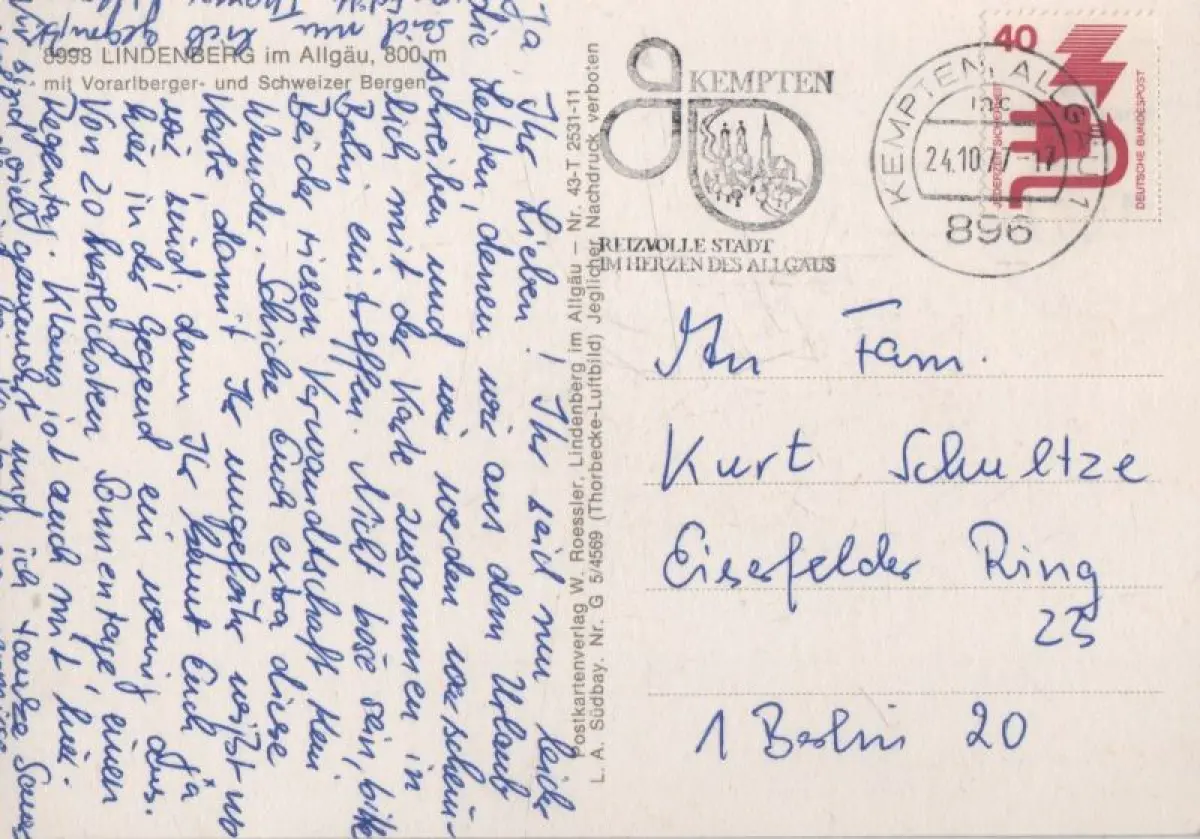 8998 LINDENBERG im Allgäu, 800 m
mit Vorarlberger- und Schweizer Bergen
Ihr Lieben! Ihr seid nun leider
die letzten, denen wir aus dem Urlaub
schreiben und wir werden warschein-
lich mit der Karte zusammen in
Berlin eintreffen. Nicht böse sein, bitte
Bei der riesen Verwandtschaft kein
Wunder. Schicke Euch extra diese
Karte damit Ihr ungefähr wißt wo
wir sind, denn Ihr kennt Euch ja
hier in der Gegend ein wenig aus.
Von 20 herrlichsten Sonnentage, einen
Regentag. Klaus ist auch mit hier.
Wir sind viel gewandert und ich
Postkartenverlag W. Roessler, Lindenberg im Allgäu – Nr. 43-T 2531-11
L. A. Südbay. Nr. G 5/4569 (Thorbecke-Luftbild) Jeglicher Nachdruck verboten
KEMPTEN
REIZVOLLE STADT
IM HERZEN DES ALLGÄUS
KEMPTEN, ALLGÄU 1
24.10.77-17
896
40
JEDERZEIT SICHERHEIT
DEUTSCHE BUNDESPOST
An Fam.
Kurt Schultze
Eiserfelder Ring
23
1 Berlin 20